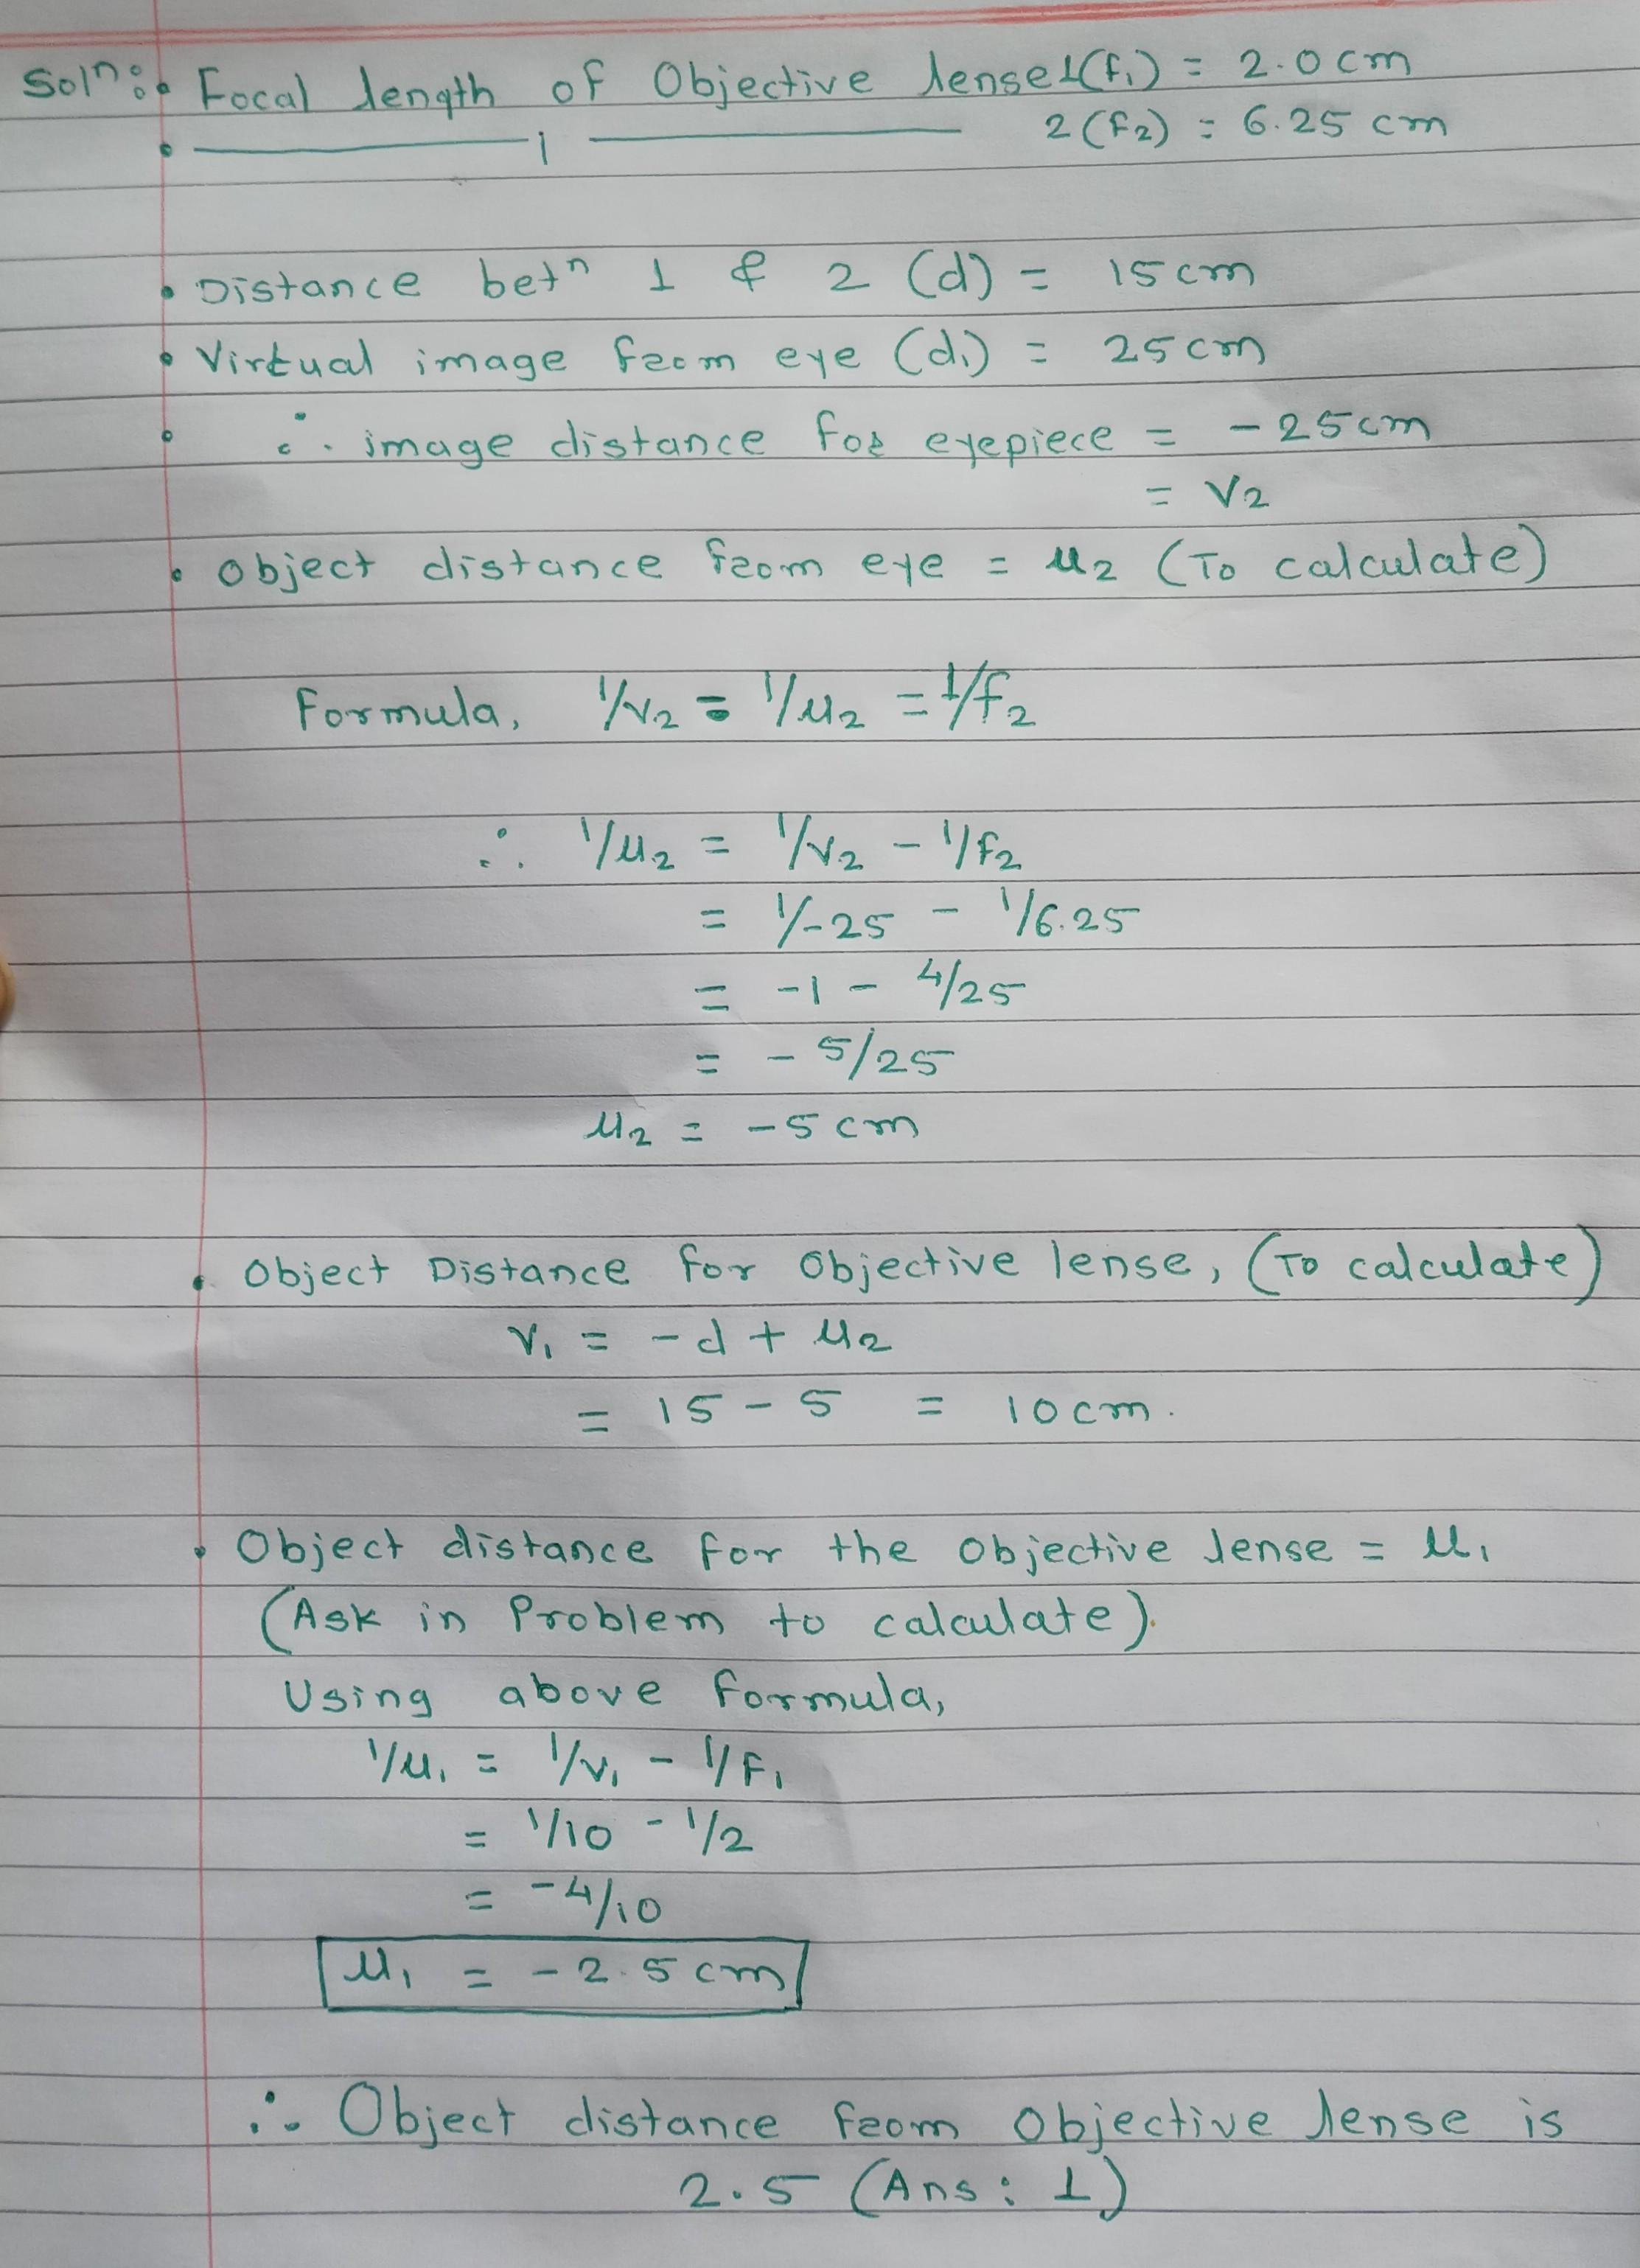 Solⁿ: • Focal length of Objective lense 1(f₁) = 2.0 cm
• ——— 1 ——— 2(f₂) = 6.25 cm
• Distance betⁿ 1 & 2 (d) = 15 cm
• Virtual image from eye (d₁) = 25 cm
• ∴ image distance for eyepiece = -25 cm
= V₂
• Object distance from eye = u₂ (To calculate)
Formula, 1/v₂ = 1/u₂ = 1/f₂
∴ 1/u₂ = 1/v₂ - 1/f₂
= 1/-25 - 1/6.25
= -1 - 4/25
= - 5/25
u₂ = -5 cm
• Object Distance for Objective lense, (To calculate)
V₁ = -d + u₂
= 15 - 5 = 10 cm.
• Object distance for the objective lense = u₁
(Ask in Problem to calculate).
Using above formula,
1/u₁ = 1/v₁ - 1/F₁
= 1/10 - 1/2
= -4/10
u₁ = -2.5 cm
∴ Object distance from Objective lense is
2.5 (Ans: 1)